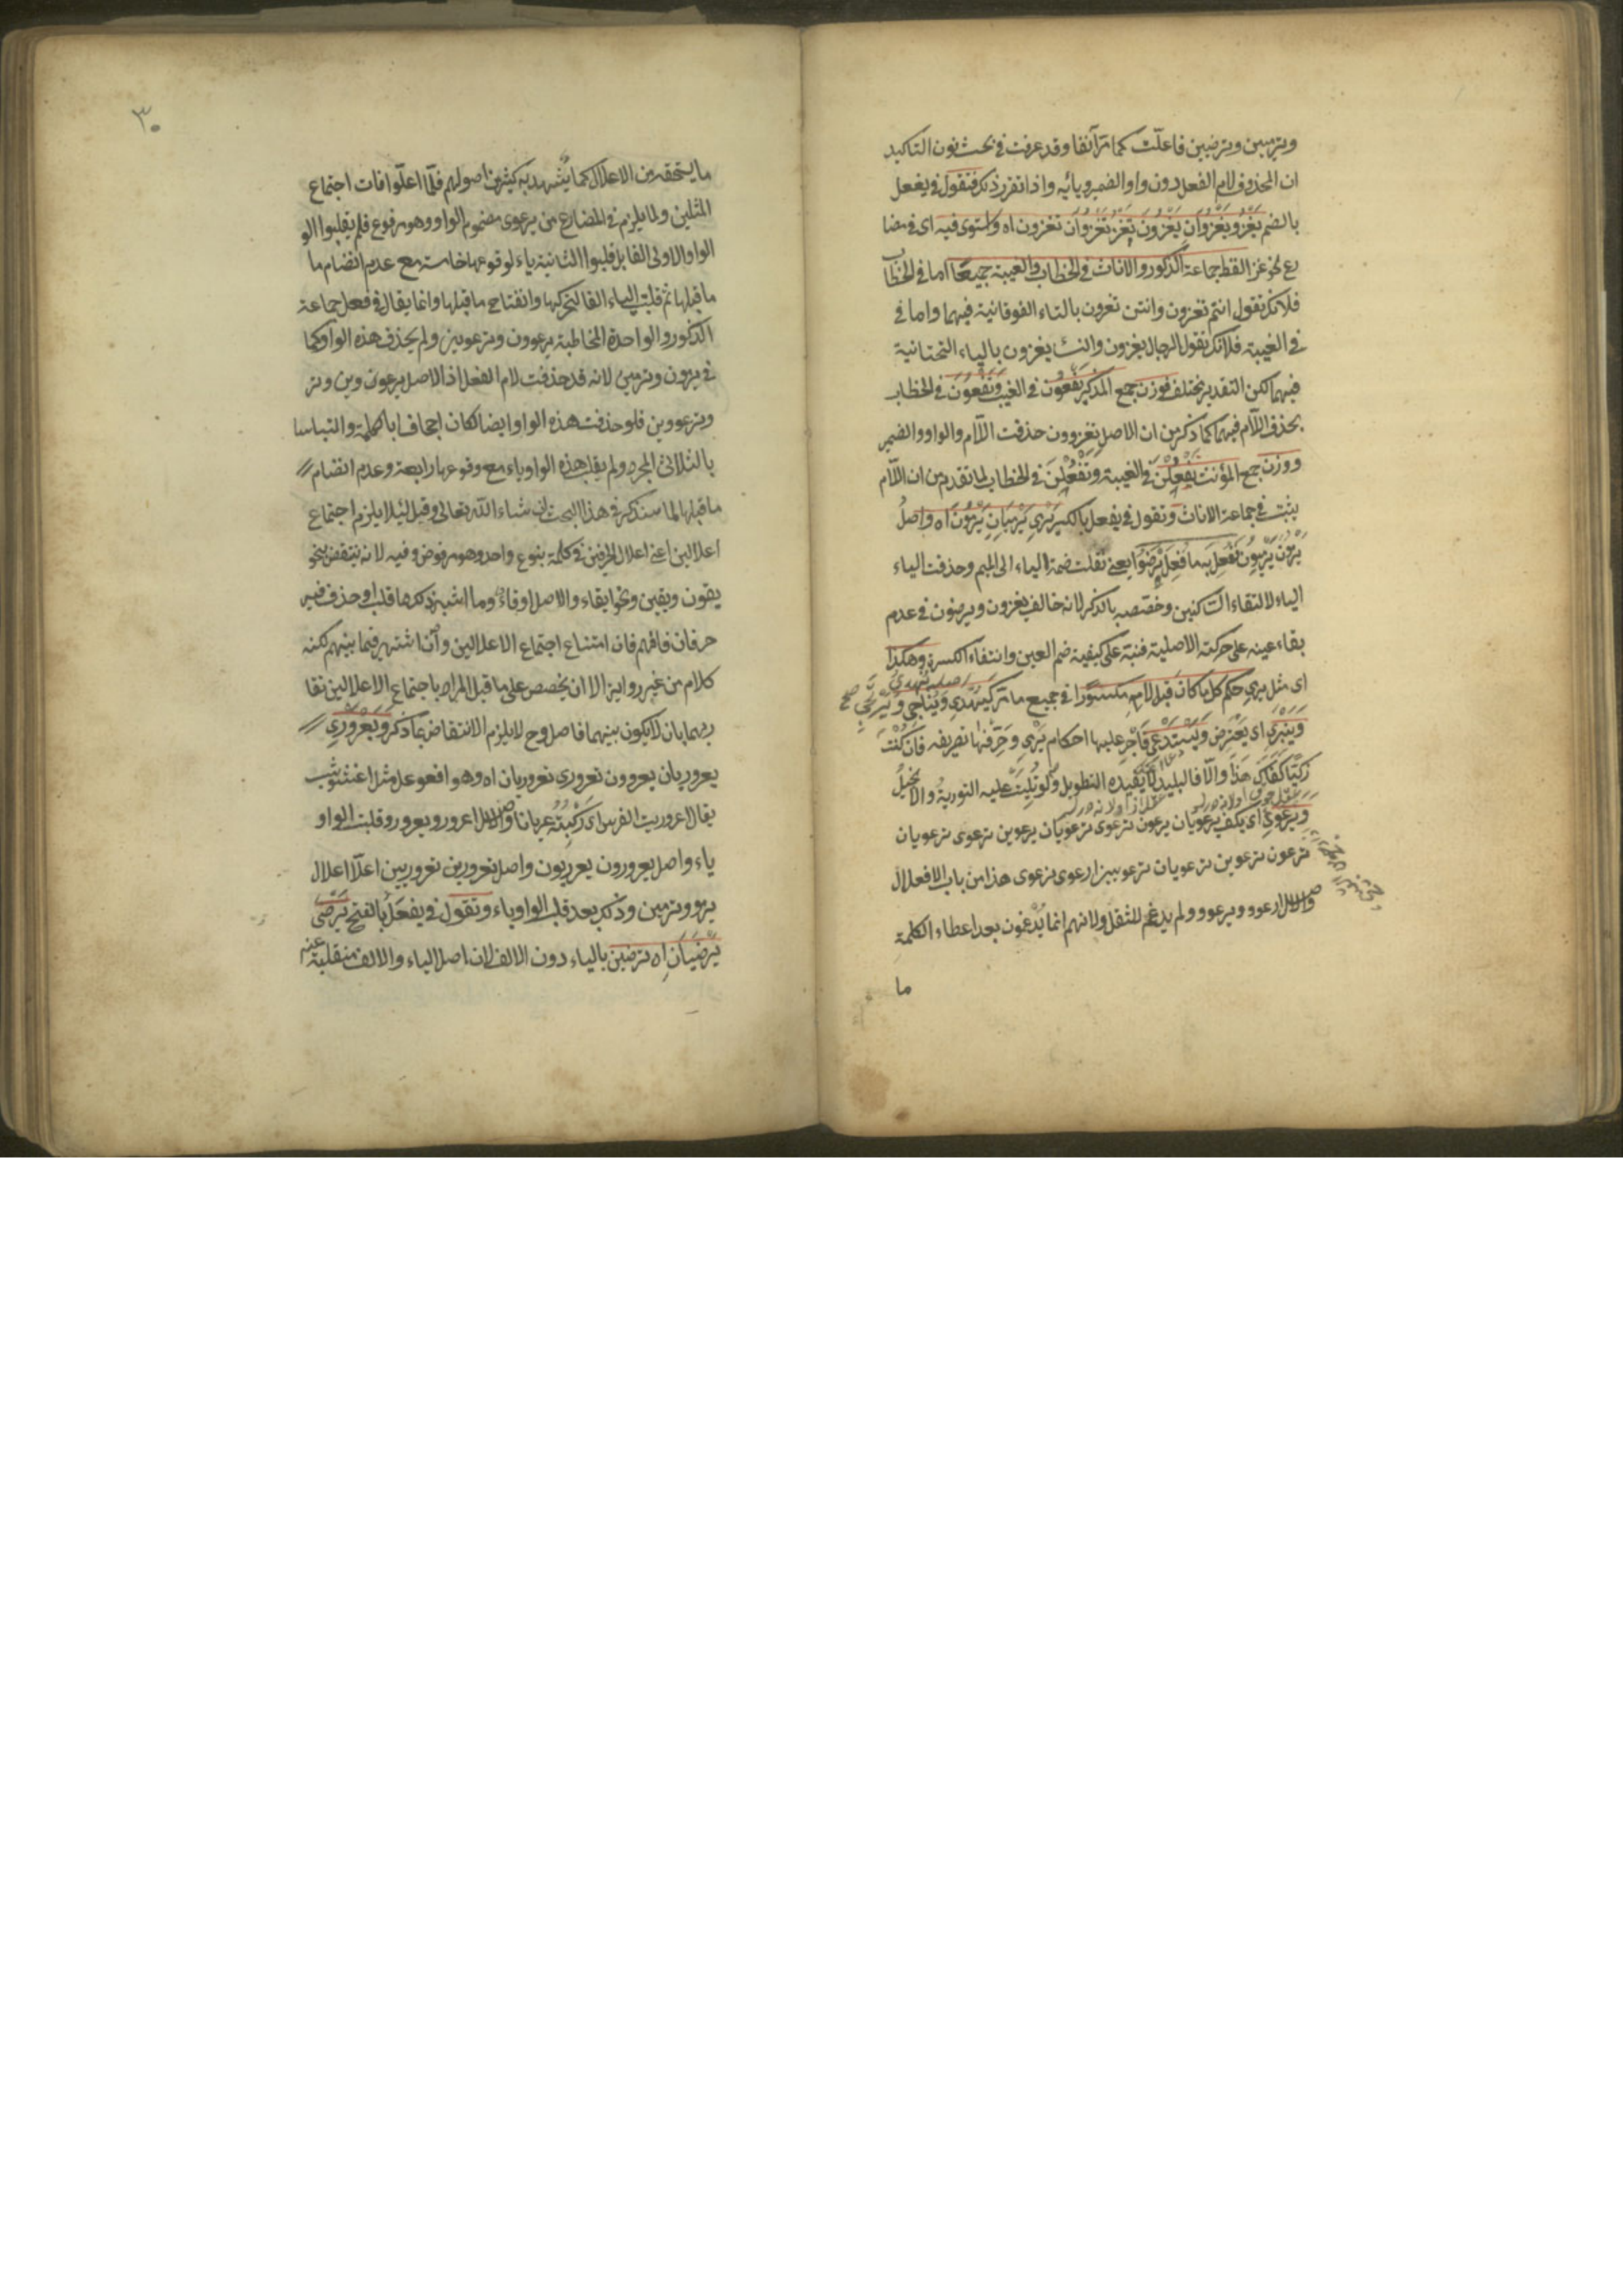 وترميين وترضيين فاعلّت كما مرّ آنفا وقد عرفت في بحث نون التاكيد
ان المحذوف لام الفعل دون واو الضمير ويائه واذا تقرر ذلك فتقول في يفعل
بالضم يَغْزُو يَغْزُوَانِ يَغْزُونَ تَغْزُو تَغْزُوَانِ تغزون اه واستوى فيه اى في مضا
رع نحو غزا لفظ جماعة الذكور والاناث في الخطاب والغيبة جميعًا اما في الخطاب
فلانك تقول انتم تغزون وانتن تغزون بالتاء الفوقانية فيهما واما في
في الغيبة فلانك تقول الرجال يغزون والنساء يغزون بالياء التحتانية
فيهما لكن التقدير مختلف فوزن جمع المذكر يَفْعُونَ في الغيب وتَفْعُونَ في الخطاب
بحذف اللّام فيهما كما ذكر من ان الاصل تغزوون حذفت اللّام والواو والضمير
ووزن جمع المؤنث يَفْعُلْنَ في الغيبة وتَفْعُلْنَ في الخطاب لما تقدم من ان اللّام
يثبت في جماعة الاناث وتقول في يفعل بالكسر يَرْمِي يَرْمِيَانِ يَرْمُونَ اه واصلُ
يَرْمُونَ يَرْمِيُونَ فَفُعِلَ به ما فُعِلَ برَضُوا يعني نقلت ضمة الياء الى الميم وحذفت الياء
الياء لالتقاء الساكنين وخصّصه بالذكر لانه خالف يغزون ويرضون في عدم
بقاء عينه على حركته الاصلية فنبّه على كيفية ضم العين وانتفاء الكسرة وهكذا
اى مثل يرمي حكم كل ما كان قبل لامه مكسورًا في جميع ما مرّ كيُهْدِي ويُنَاجِي ويَرْتَجِي صح
ويَنْبَرِي اى يعترض ويَسْتَدْعِي فَأَجْرِ عليها احكام يرمي وَصَرِّفْهَا تصريفه فَإنْ كُنْتَ
زَكِيًّا كَفَاكَ هَذَا والّا فالبليد لا يُفيده التطويل ولو تُلِيَتْ عليه التورية والانجيلُ
ويَرْعَوِي اى يكف يرعويان يرعوون ترعوى ترعويان يرعوين ترعوى ترعويان
ترعون ترعوين ترعويان ترعوين ارعوى نرعوى هذا من باب الافعلال
والاصل ارعوو ويرعوو ولم يدغم للثقل ولانهم انما يُدْغِمون بعد اعطاء الكلمة
ما
٣٠
ما يستحقه من الاعلال كما يشهد به كثير من اصولهم فلّما اعلّوا فات اجتماع
المثلين ولما يلزم في المضارع من يرعوى مضموم الواو وهو مرفوع فلم يقلبوا الو
الواو الاولى الفا بل قلبوا الثانية ياء لوقوعها خامسة مع عدم انضمام ما
ما قبلها ثم قلبت الياء الفا لتحركها وانفتاح ما قبلها وانما يقال في فعل جماعة
الذكور والواحدة المخاطبة يرعوون وترعوين ولم يحذف هذه الواو كما
في يرمون وترمين لانه قد حذفت لام الفعل اذ الاصل يرعوون وين وتر
وترعووين فلو حذفت هذه الواو ايضا لكان اجحافا بالكلمة والتباسا
بالثلاثى المجرد ولم يقلب هذه الواو ياء مع وقوعها رابعة وعدم انضمام
ما قبلها لما سنذكر في هذا البحث ان شاء الله تعالى وقيل لئلا يلزم اجتماع
اعلالين اعني اعلال الحرفين في كلمة بنوع واحد وهو مرفوض وفيه لانه ينتقض بنحو
يقون وتقين ونحو ايقاء والاصل اوقاى وما اشبه ذلك مما قلب او حذف فيه
حرفان فافهم فان امتناع اجتماع الاعلالين وان اشتهر فيما بينهم لكنه
كلام من غير رواية الا ان يخصص على ما قيل المراد باجتماع الاعلالين تقا
ربهما بان لا يكون بينهما فاصل وح لا يلزم الانتقاض بما ذكر ويَعْرَوْرِي
يعروريان يعرورون تعرورى تعروريان اه وهو افعوعل مثل اعشوشب
يقال اعروريت الفرس اى رَكِبْتُهُ عريانا والاصل اعرورو ويعرورو قلبت الواو
ياء واصل يعرورون يعروريون واصل تعرورين تعروريين اعلّا اعلال
يرمون وترمين وذلك بعد قلب الواو ياء وتقول في يفعَل بالفتح يَرْضَى
يَرْضَيَانِ اه ترضين بالياء دون الالف لان اصل الياء والالف منقلبة عنه